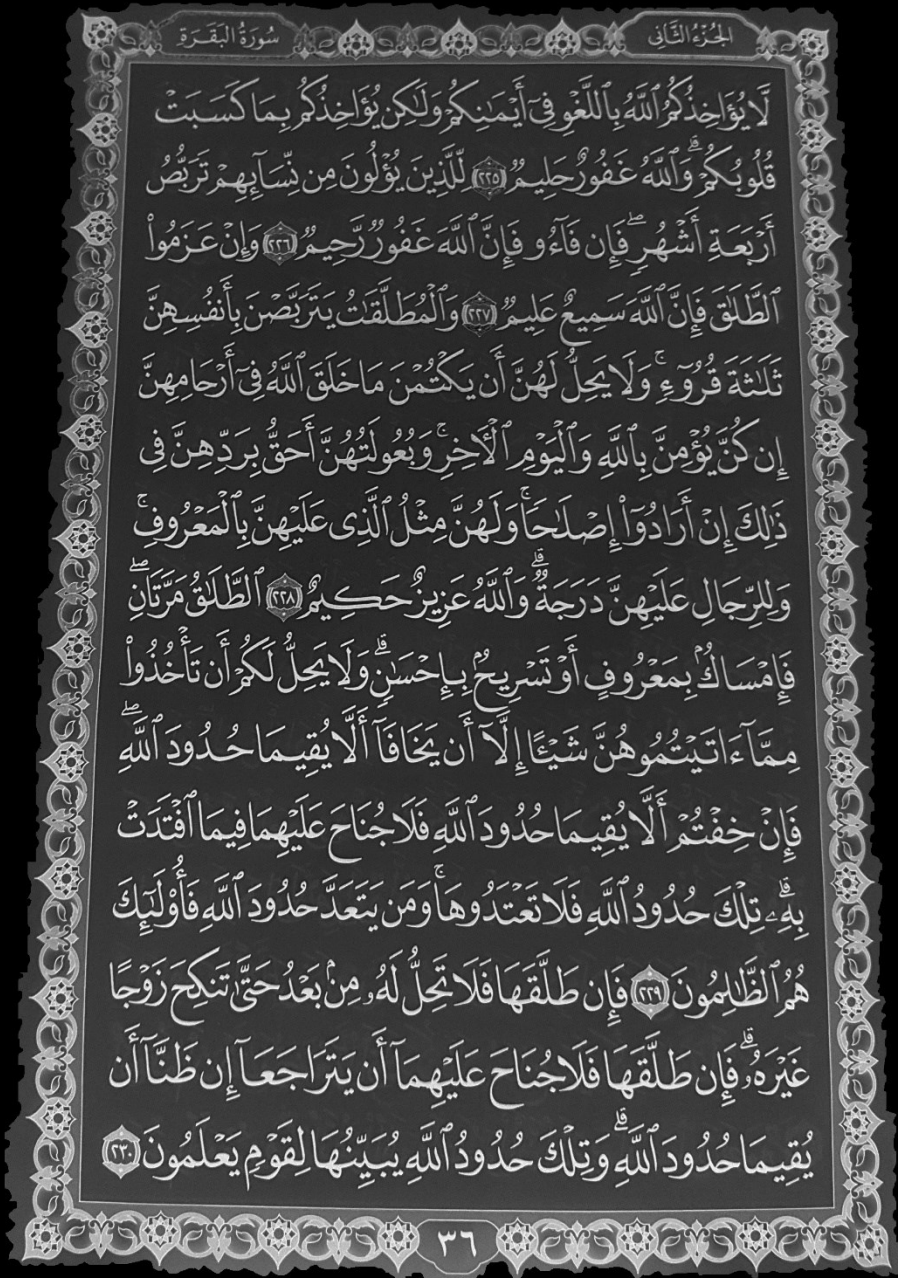 الجُزْءُ الثَّانِي
سُورَةُ البَقَرَةِ
لَّا يُؤَاخِذُكُمُ ٱللَّهُ بِٱللَّغْوِ فِىٓ أَيْمَٰنِكُمْ وَلَٰكِن يُؤَاخِذُكُم بِمَا كَسَبَتْ
قُلُوبُكُمْ ۗ وَٱللَّهُ غَفُورٌ حَلِيمٌ ٢٢٥ لِّلَّذِينَ يُؤْلُونَ مِن نِّسَآئِهِمْ تَرَبُّصُ
أَرْبَعَةِ أَشْهُرٍ ۖ فَإِن فَآءُو فَإِنَّ ٱللَّهَ غَفُورٌ رَّحِيمٌ ٢٢٦ وَإِنْ عَزَمُوا۟
ٱلطَّلَٰقَ فَإِنَّ ٱللَّهَ سَمِيعٌ عَلِيمٌ ٢٢٧ وَٱلْمُطَلَّقَٰتُ يَتَرَبَّصْنَ بِأَنفُسِهِنَّ
ثَلَٰثَةَ قُرُوٓءٍ ۚ وَلَا يَحِلُّ لَهُنَّ أَن يَكْتُمْنَ مَا خَلَقَ ٱللَّهُ فِىٓ أَرْحَامِهِنَّ
إِن كُنَّ يُؤْمِنَّ بِٱللَّهِ وَٱلْيَوْمِ ٱلْـَٔاخِرِ ۚ وَبُعُولَتُهُنَّ أَحَقُّ بِرَدِّهِنَّ فِى
ذَٰلِكَ إِنْ أَرَادُوٓا۟ إِصْلَٰحًا ۚ وَلَهُنَّ مِثْلُ ٱلَّذِى عَلَيْهِنَّ بِٱلْمَعْرُوفِ ۚ
وَلِلرِّجَالِ عَلَيْهِنَّ دَرَجَةٌ ۗ وَٱللَّهُ عَزِيزٌ حَكِيمٌ ٢٢٨ ٱلطَّلَٰقُ مَرَّتَانِ ۖ
فَإِمْسَاكٌۢ بِمَعْرُوفٍ أَوْ تَسْرِيحٌۢ بِإِحْسَٰنٍ ۗ وَلَا يَحِلُّ لَكُمْ أَن تَأْخُذُوا۟
مِمَّآ ءَاتَيْتُمُوهُنَّ شَيْـًٔا إِلَّآ أَن يَخَافَآ أَلَّا يُقِيمَا حُدُودَ ٱللَّهِ ۖ
فَإِنْ خِفْتُمْ أَلَّا يُقِيمَا حُدُودَ ٱللَّهِ فَلَا جُنَاحَ عَلَيْهِمَا فِيمَا ٱفْتَدَتْ
بِهِۦ ۗ تِلْكَ حُدُودُ ٱللَّهِ فَلَا تَعْتَدُوهَا ۚ وَمَن يَتَعَدَّ حُدُودَ ٱللَّهِ فَأُو۟لَٰٓئِكَ
هُمُ ٱلظَّٰلِمُونَ ٢٢٩ فَإِن طَلَّقَهَا فَلَا تَحِلُّ لَهُۥ مِنۢ بَعْدُ حَتَّىٰ تَنكِحَ زَوْجًا
غَيْرَهُۥ ۗ فَإِن طَلَّقَهَا فَلَا جُنَاحَ عَلَيْهِمَآ أَن يَتَرَاجَعَآ إِن ظَنَّآ أَن
يُقِيمَا حُدُودَ ٱللَّهِ ۗ وَتِلْكَ حُدُودُ ٱللَّهِ يُبَيِّنُهَا لِقَوْمٍ يَعْلَمُونَ ٢٣٠
٣٦